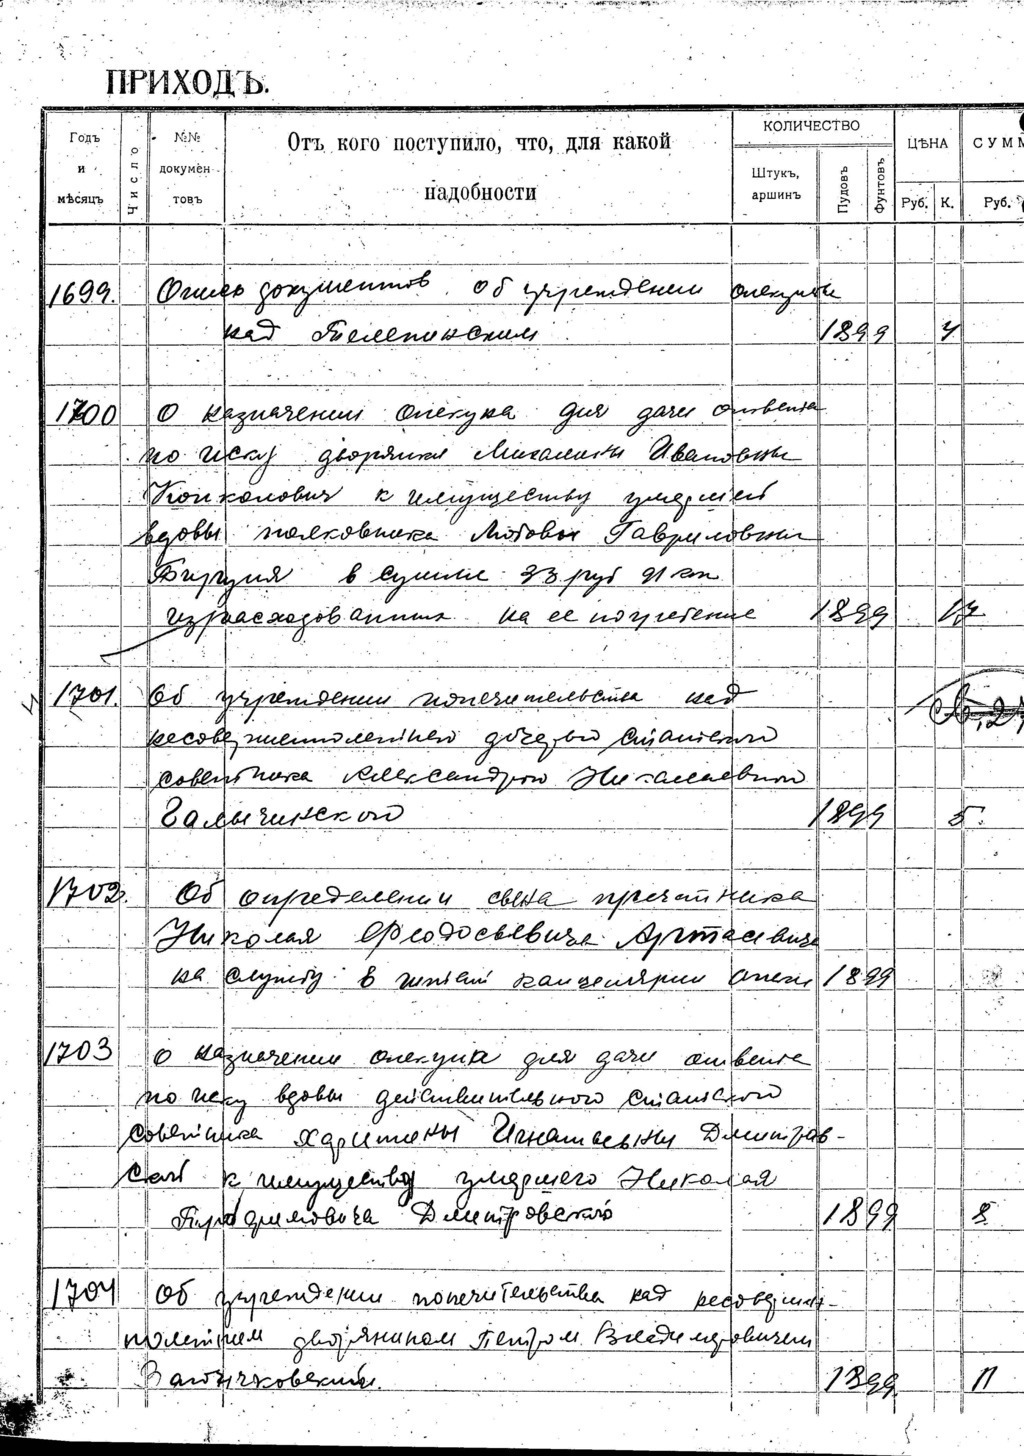 ПРИХОДЪ.
Годъ и мѣсяцъ
Число
№№ докумен-товъ
Отъ кого поступило, что, для какой надобности
КОЛИЧЕСТВО
Штукъ, аршинъ
Пудовъ
Фунтовъ
ЦѢНА
Руб. К.
СУММ
Руб.
1699. Опись документов об учреждении опекуны
над Телепинским 1899 4
1700 О назначении опекуна для дачи ответа
по иску дворянки Михалины Ивановны
к имуществу умершей
вдовы полковника Любови Гавриловны
в сумме 93 руб 91 коп
израсходованных на ее погребение 1899 17
1701. Об учреждении попечительства над
несовершеннолетнею дочерью статского
советника Александрою Николаевною
Галычинского 1899 5.
1702. Об определении сына причетника
Николая Феодосьевича Артасевича
на службу в штат канцелярии опеки 1899
1703 О назначении опекуна для дачи ответа
по иску вдовы действительного статского
советника Харитины Игнатьевны Дмитров-
ской к имуществу умершего Николая
Дмитровского 1899 8
1704 Об учреждении попечительства над несовершен-
нолетнем дворянином Петром Владимировичем
1899 11